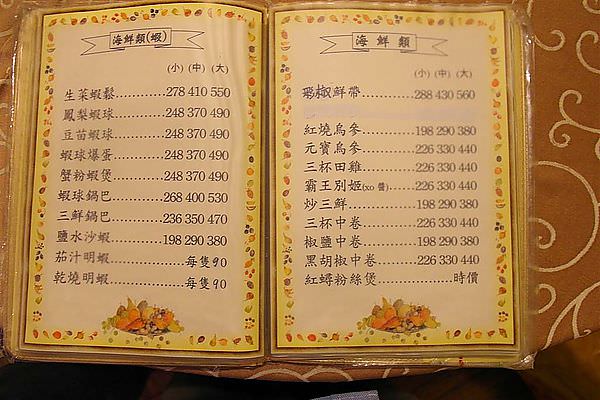 海鮮類(蝦)
(小) (中) (大)
生菜蝦鬆............278 410 550
鳳梨蝦球............248 370 490
豆苗蝦球............248 370 490
蝦球爆蛋............248 370 490
蟹粉蝦煲............248 370 490
蝦球鍋巴............268 400 530
三鮮鍋巴............236 350 470
鹽水沙蝦............198 290 380
茄汁明蝦................每隻90
乾燒明蝦................每隻90
海鮮類
(小) (中) (大)
椒鮮帶............288 430 560
紅燒烏參............198 290 380
元寶烏參............226 330 440
三杯田雞............226 330 440
霸王別姬(xo 醬)..226 330 440
炒三鮮................198 290 380
三杯中卷............226 330 440
椒鹽中卷............198 290 380
黑胡椒中卷........226 330 440
紅蟳粉絲煲................時價